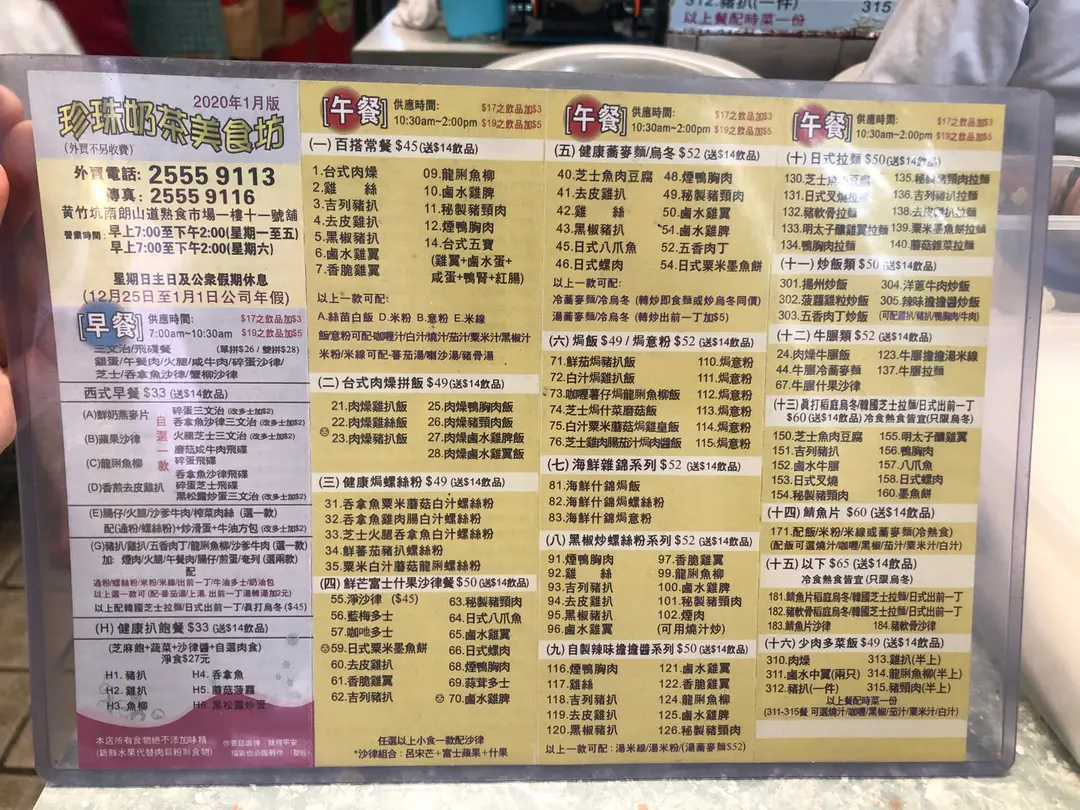 312.豬扒(一件)
315
以上餐配時菜一份
2020年1月版
珍珠奶茶美食坊
(外買不另收費)
外賣電話: 2555 9113
傳真: 2555 9116
黃竹坑南朗山道熟食市場一樓十一號舖
營業時間: 早上7:00至下午2:00(星期一至五)
早上7:00至下午2:00(星期六)
星期日主日及公衆假期休息
(12月25日至1月1日公司年假)
[早餐] 供應時間: $17之飲品加$3
7:00am~10:30am $19之飲品加$5
三文治/飛碟餐 (單拼$26 / 雙拼$28)
雞蛋/午餐肉/火腿/咸牛肉/碎蛋沙律/
芝士/吞拿魚沙律/蟹柳沙律
西式早餐 $33 (送$14飲品)
(A)鮮奶燕麥片
(B)蘋果沙律
(C)龍脷魚柳
(D)香煎去皮雞扒
自選一款
碎蛋三文治 (改多士加$2)
吞拿魚沙律三文治 (改多士加$2)
火腿芝士三文治 (改多士加$2)
蘑菇咸牛肉飛碟
碎蛋飛碟
吞拿魚沙律飛碟
碎蛋芝士飛碟
黑松露炒蛋三文治 (改多士加$2)
(E)腸仔/火腿/沙爹牛肉/榨菜肉絲 (選一款)
配(通粉/螺絲粉)+炒滑蛋+牛油方包 (改多士加$2)
(G)豬扒/雞扒/五香肉丁/龍脷魚柳/沙爹牛肉 (選一款)
加 煙肉/火腿/午餐肉/腸仔/煎蛋/奄列 (選兩款)
配
通粉/螺絲粉/米粉/米線/出前一丁/牛油多士/奶油包
以上選一款可 (配-蕃茄湯/上湯, 出前一丁湯轉湯加2元)
以上配韓國芝士拉麵/日式出前一丁/眞打烏冬($45)
(H) 健康扒飽餐 $33 (送$14飲品)
(芝麻飽+蔬菜+沙律醬+自選肉食)
淨食$27元
H1. 豬扒 H4. 吞拿魚
H2. 雞扒 H5. 蘑菇菠蘿
H3. 魚柳 H6. 黑松露炒蛋
本店所有食物絶不添加味精
(新鮮水果代替肉鬆粉制食物)
[午餐] 供應時間: $17之飲品加$3
10:30am~2:00pm $19之飲品加$5
(一) 百搭常餐 $45(送$14飲品)
1.台式肉燥 09.龍脷魚柳
2.雞 絲 10.鹵水雞脾
3.吉列豬扒 11.秘製豬頸肉
4.去皮雞扒 12.煙鴨肉
5.黑椒豬扒 14.台式五寶
6.鹵水雞翼 (雞翼+鹵水蛋+
7.香脆雞翼 咸蛋+鴨腎+紅腸)
以上一款可配:
A.絲苗白飯 D.米粉 B.意粉 E.米線
飯/意粉可配-咖喱汁/白汁/燒汁/茄汁/粟米汁/黑椒汁
米粉/米線可配-蕃茄湯/喇沙湯/豬骨湯
(二) 台式肉燥拼飯 $49(送$14飲品)
21.肉燥雞扒飯 25.肉燥鴨胸肉飯
22.肉燥雞絲飯 26.肉燥豬頸肉飯
23.肉燥豬扒飯 27.肉燥鹵水雞脾飯
28.肉燥鹵水雞翼飯
(三) 健康焗螺絲粉 $49 (送$14飲品)
31.吞拿魚粟米蘑菇白汁螺絲粉
32.吞拿魚雞肉腸白汁螺絲粉
33.芝士火腿吞拿魚白汁螺絲粉
34.鮮蕃茄豬扒螺絲粉
35.粟米白汁蘑菇龍脷螺絲粉
(四) 鮮芒富士什果沙律餐 $50(送$14飲品)
55.淨沙律 ($45) 63.秘製豬頸肉
56.藍梅多士 64.日式八爪魚
57.咖吔多士 65.鹵水雞翼
59.日式粟米墨魚餅 66.日式螺肉
60.去皮雞扒 68.煙鴨胸肉
61.香脆雞翼 69.蒜茸多士
62.吉列豬扒 70.鹵水雞脾
任選以上小食一款配沙律
*沙律組合: 呂宋芒+富士蘋果+什果
[午餐] 供應時間: $17之飲品加$3
10:30am~2:00pm $19之飲品加$5
(五) 健康蕎麥麵/烏冬 $52 (送$14飲品)
40.芝士魚肉豆腐 48.煙鴨胸肉
41.去皮雞扒 49.秘製豬頸肉
42.雞 絲 50.鹵水雞翼
43.黑椒豬扒 51.鹵水雞脾
45.日式八爪魚 52.五香肉丁
46.日式螺肉 54.日式粟米墨魚餅
以上一款可配:
冷蕎麥麵/冷烏冬 (轉炒即食麵或炒烏冬同價)
湯蕎麥麵/冷烏冬 (轉炒出前一丁加$5)
(六) 焗飯 $49 / 焗意粉 $52 (送$14飲品)
71.鮮茄焗豬扒飯 110.焗意粉
72.白汁焗雞扒飯 111.焗意粉
73.咖喱薯仔焗龍脷魚柳飯 112.焗意粉
74.芝士焗什菜蘑菇飯 113.焗意粉
75.白汁粟米蘑菇焗雞皇飯 114.焗意粉
76.芝士雞肉腸茄汁焗肉醬飯 115.焗意粉
(七) 海鮮雜錦系列 $52 (送$14飲品)
81.海鮮什錦焗飯
82.海鮮什錦焗螺絲粉
83.海鮮什錦焗意粉
(八) 黑椒炒螺絲粉系列 $52 (送$14飲品)
91.煙鴨胸肉 97.香脆雞翼
92.雞 絲 99.龍脷魚柳
93.吉列豬扒 100.鹵水雞脾
94.去皮雞扒 101.秘製豬頸肉
95.黑椒豬扒 102.煙肉
96.鹵水雞翼 (可用燒汁炒)
(九) 自製辣味擔擔醬系列 $50 (送$14飲品)
116.煙鴨胸肉 121.鹵水雞翼
117.雞絲 122.香脆雞翼
118.吉列豬扒 124.龍脷魚柳
119.去皮雞扒 125.鹵水雞脾
120.黑椒豬扒 126.秘製豬頸肉
以上一款可配 : 湯米線/湯米粉/(湯蕎麥麵$52)
[午餐] 供應時間: $17之飲品加$3
10:30am~2:00pm $19之飲品加$5
(十) 日式拉麵 $50(送$14飲品)
130.芝士魚肉豆腐 135.秘製豬頸肉拉麵
131.日式叉燒拉麵 136.吉列豬扒拉麵
132.豬軟骨拉麵 138.去皮雞扒拉麵
133.明太子釀雞翼拉麵 139.粟米墨魚餅拉麵
134.鴨胸肉拉麵 140.蘑菇雜菜拉麵
(十一) 炒飯類 $50 (送$14飲品)
301.揚州炒飯 304.洋蔥牛肉炒飯
302.菠蘿雞粒炒飯 305.辣味擔擔醬炒飯
303.五香肉丁炒飯 (可配雞扒/豬扒/鴨胸肉/牛肉)
(十二) 牛腩類 $52 (送$14飲品)
24.肉燥牛腩飯 123.牛腩擔擔湯米線
44.牛腩冷蕎麥麵 137.牛腩拉麵
67.牛腩什果沙律
(十三) 眞打稻庭烏冬/韓國芝士拉麵/日式出前一丁
$60(送$14飲品) 冷食熱食皆宜(只限烏冬)
150.芝士魚肉豆腐 155.明太子釀雞翼
151.吉列豬扒 156.鴨胸肉
152.鹵水牛腩 157.八爪魚
153.日式叉燒 158.日式螺肉
154.秘製豬頸肉 160.墨魚餅
(十四) 鯖魚片 $60 (送$14飲品)
171.配飯/米粉/米線或蕎麥麵(冷熱食)
(配飯可選燒汁/咖喱/黑椒/茄汁/粟米汁/白汁)
(十五) 以下 $65 (送$14飲品)
冷食熱食皆宜 (只限烏冬)
181.鯖魚片稻庭烏冬/韓國芝士拉麵/日式出前一丁
182.豬軟骨稻庭烏冬/韓國芝士拉麵/日式出前一丁
183.鯖魚片沙律 184.豬軟骨沙律
(十六) 少肉多菜飯 $49 (送$14飲品)
310.肉燥 313.雞扒(半上)
311.鹵水中翼(兩只) 314.龍脷魚柳(半上)
312.豬扒(一件) 315.豬頸肉(半上)
以上餐配時菜一份
(311-315餐 可選燒汁/咖喱/黑椒/茄汁/粟米汁/白汁)